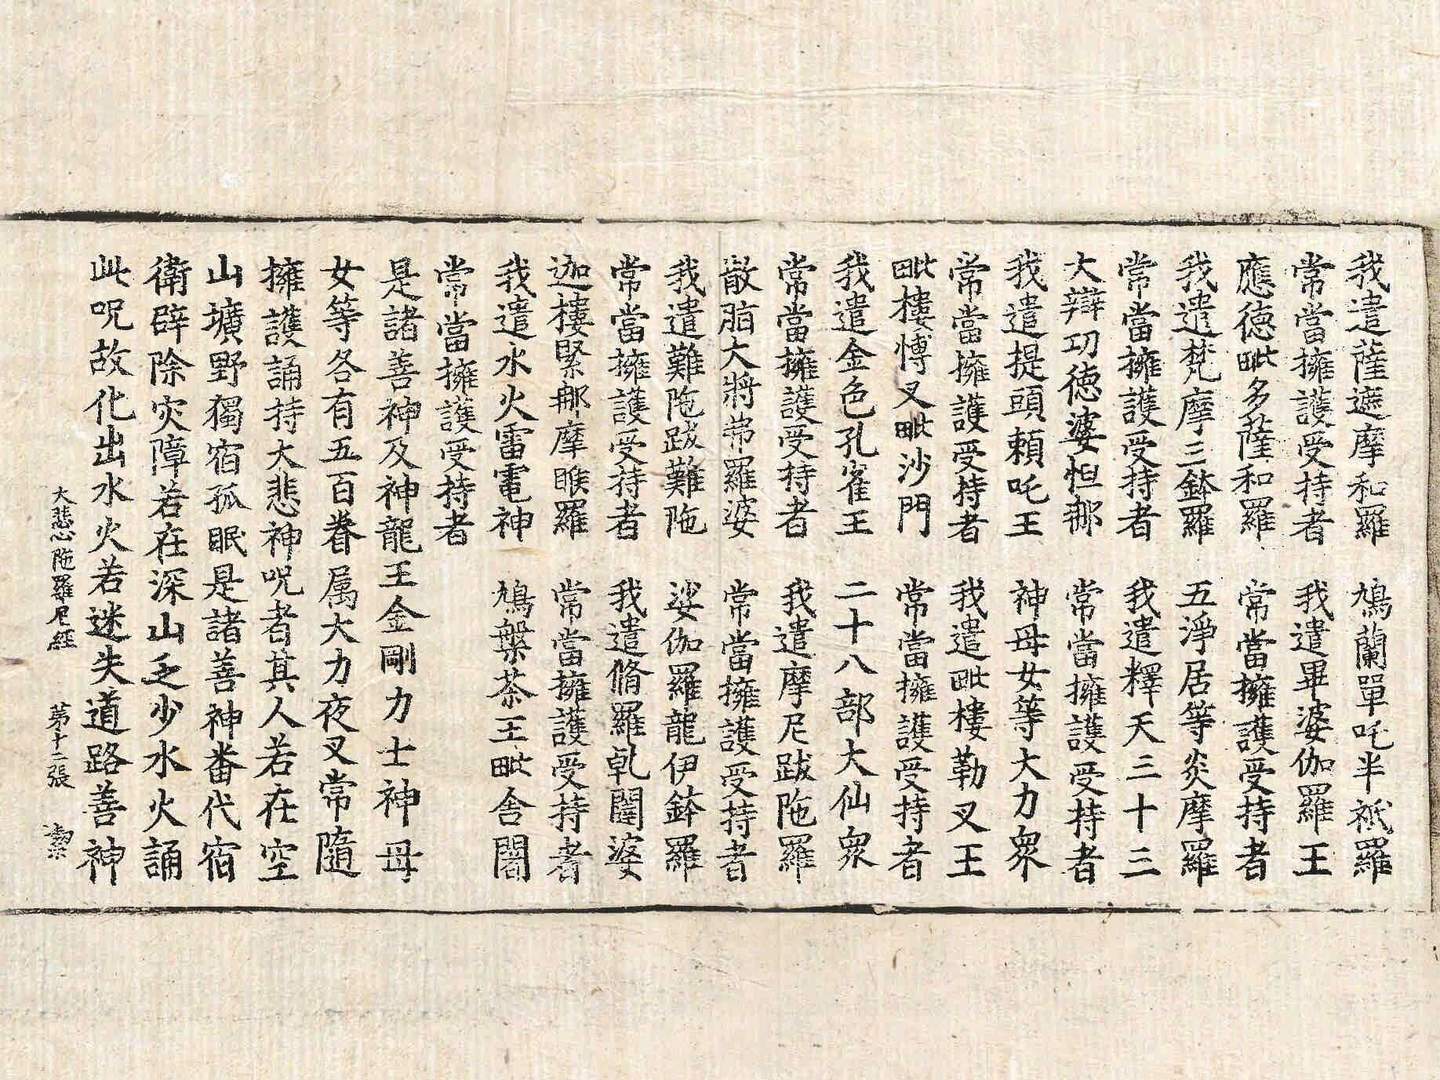 我遣薩遮摩和羅　鳩蘭單吒半祇羅
常當擁護受持者　我遣畢婆伽羅王
應德毗多薩和羅　常當擁護受持者
我遣梵摩三鉢羅　五淨居等炎摩羅
常當擁護受持者　我遣釋天三十三
大辯功德婆怛那　常當擁護受持者
我遣提頭頼吒王　神母女等大力眾
常當擁護受持者　我遣毗樓勒叉王
毗樓愽叉毗沙門　常當擁護受持者
我遣金色孔雀王　二十八部大仙眾
常當擁護受持者　我遣摩尼跋陁羅
散脂大將弗羅婆　常當擁護受持者
我遣難陁跋難陁　娑伽羅龍伊鉢羅
常當擁護受持者　我遣脩羅乹闥婆
迦樓緊那摩睺羅　常當擁護受持者
我遣水火雷電神　鳩槃荼王毗舍闍
常當擁護受持者
是諸善神及神龍王金剛力士神母
女等各有五百眷属大力夜叉常隨
擁護誦持大悲神呪者其人若在空
山壙野獨宿孤眠是諸善神番代宿
衛辟除灾障若在深山乏少水火誦
此呪故化出水火若迷失道路善神
大悲心陁羅尼經　第十二張